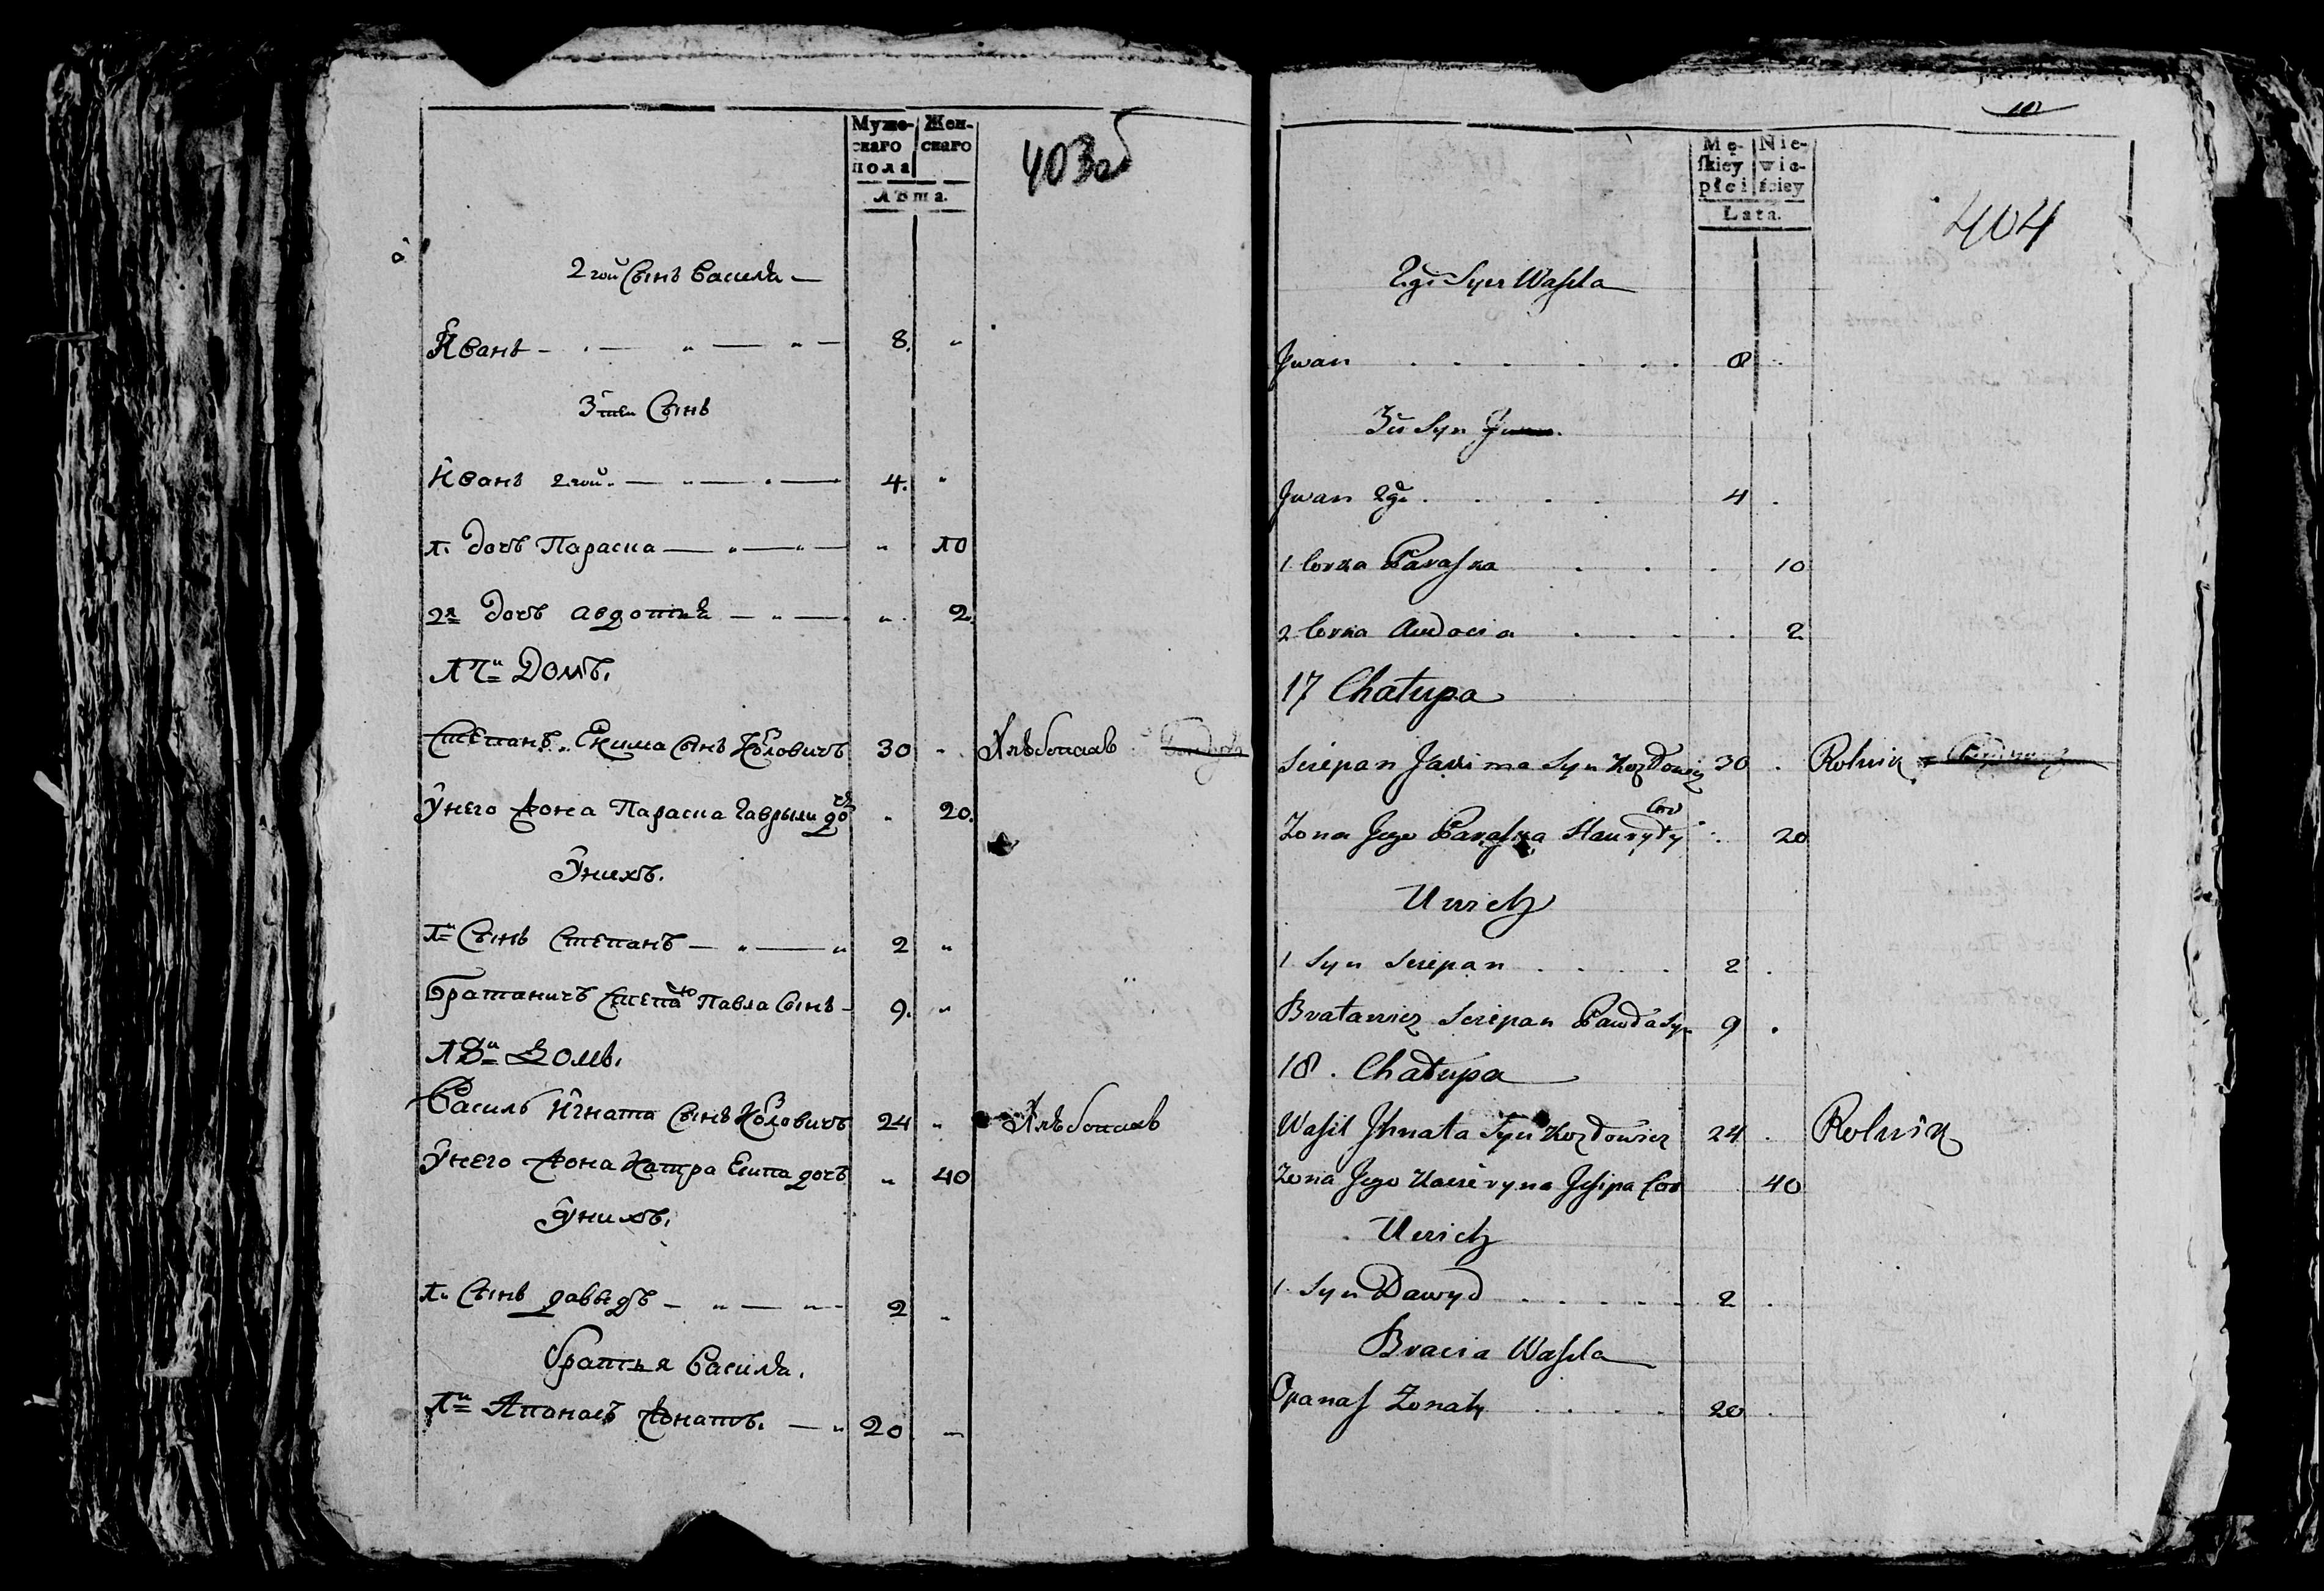 Муже-
скаго
пола
Жен-
скаго
Лѣта.
403об
2гой Сынъ Василя
Иванъ 8.
3тій Сынъ
Иванъ 2гой. 4.
1. дочь Параска 10
2я дочь Авдотія 2.
17й Домъ.
Степанъ Якима Сынъ Козловичъ 30 Хлѣбопашъ
Унего Жона Параска Гаврыли дочь 20.
Унихъ.
1й Сынъ Степанъ 2
Братаничъ Степанъ Павла Сынъ 9.
18й Домъ.
Василь Игната Сынъ Козловичъ 24 Хлѣбопашъ
Унего Жона Катра Есипа дочь 40
Унихъ.
1й Сынъ Давыдъ 2
братья Василя.
1й Апанасъ Жонатъ. 20
Mę-
skiey
płci
Nie-
wie-
ściey
Lata.
404
2gi Syn Wasila
Jwan 8
3ci Syn
Jwan 2gi 4
1 Corka Paraska 10
2 Corka Audocia 2
17 Chałupa
Sciepan Jakima Syn Kozłowicz 30 Rolnik
Zona Jego Paraska Hauryły Cor 20
U nich
1 Syn Sciepan 2
Bratanicz Sciepan Pawła Syn 9
18. Chałupa
Wasil Jhnata Syn Kozłowicz 24 Rolnik
Zona Jego Kacieryna Jesipa Cor 40
U nich
1. Syn Dawyd 2
Bracia Wasila
Opanas Zonaty 20